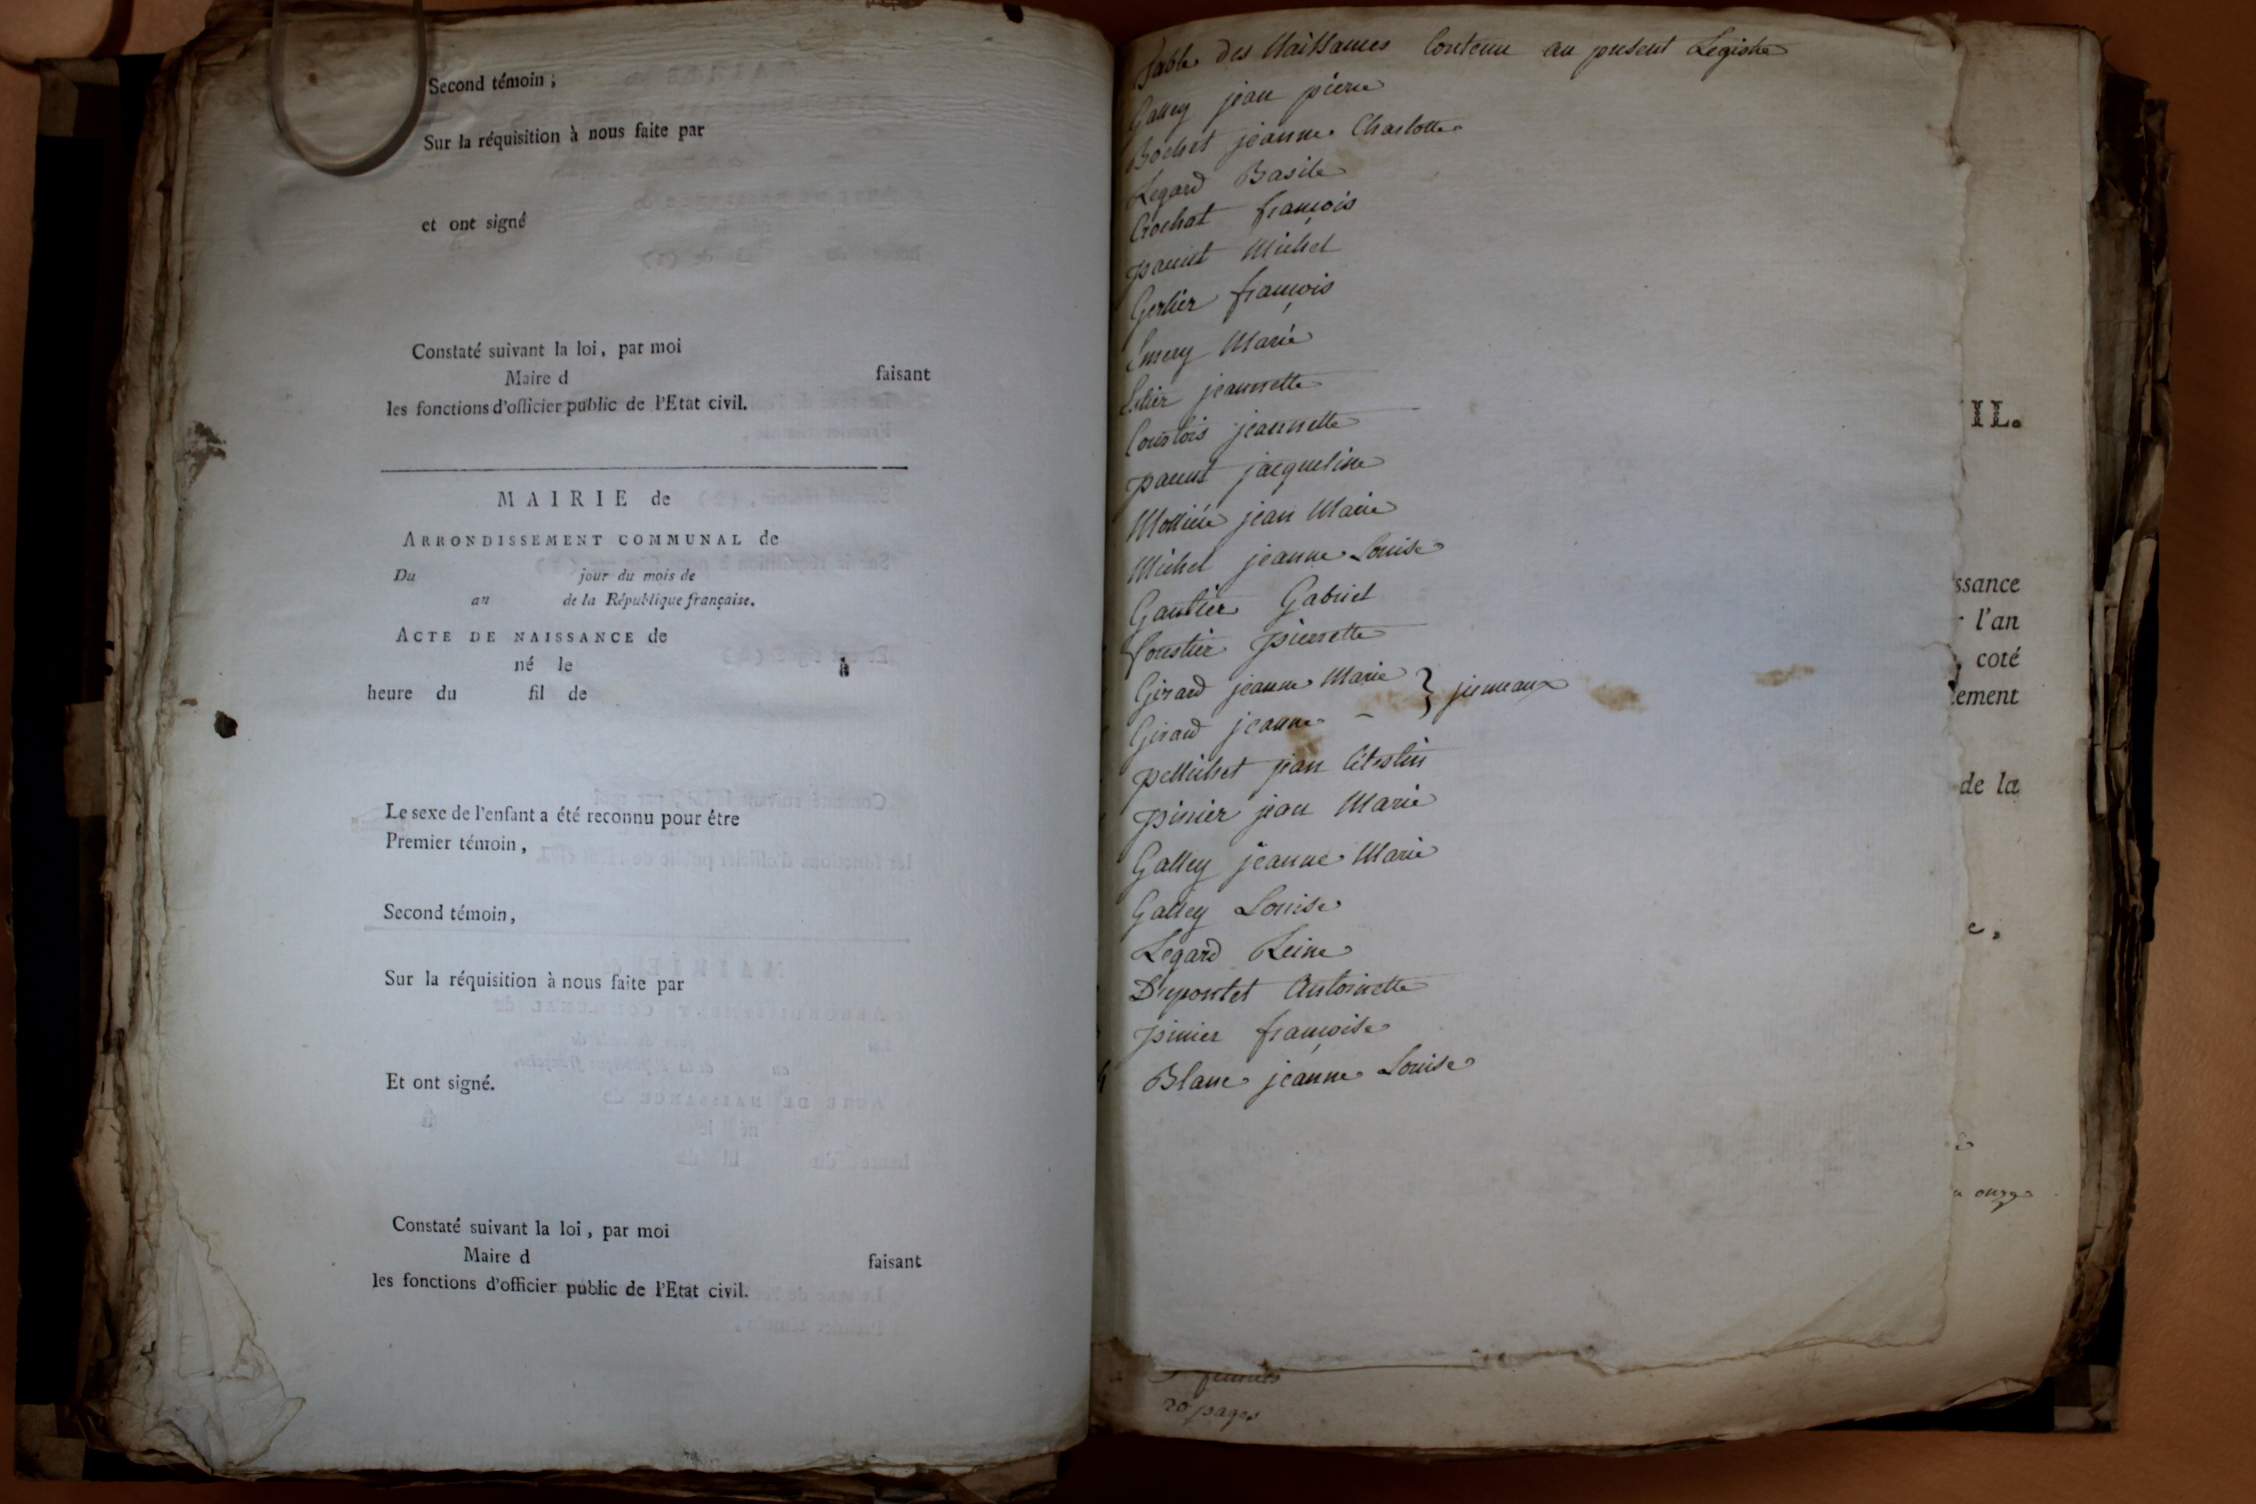 Second témoin ;
Sur la réquisition à nous faite par
et ont signé
Constaté suivant la loi, par moi
Maire d faisant
les fonctions d'officier public de l'Etat civil.
MAIRIE de
ARRONDISSEMENT COMMUNAL de
Du jour du mois de
an de la République française.
ACTE DE NAISSANCE de
né le à
heure du fil de
Le sexe de l'enfant a été reconnu pour être
Premier témoin,
Second témoin,
Sur la réquisition à nous faite par
Et ont signé.
Constaté suivant la loi, par moi
Maire d faisant
les fonctions d'officier public de l'Etat civil.
Table des Naissances Contenu au present Registre
Galley jean pierre
Bochet jeanne Charlotte
Regard Basile
Crochat françois
pauut Michel
Gerlier françois
Emery Marie
jeannette
Courtois jeannette
pauut jacqueline
jean Marie
Michel jeanne Louise
Gautier Gabriel
pierrette
Girard jeanne Marie } jumeaux
Girard jeanne
pellichet jean Celestin
pinier jean Marie
Galley jeanne Marie
Galley Louise
Regard Reine
Dupontet Antoinette
pinier françoise
Blanc jeanne Louise
20 pages
IL.
ssance
l'an
, coté
ement
de la
e,
onze